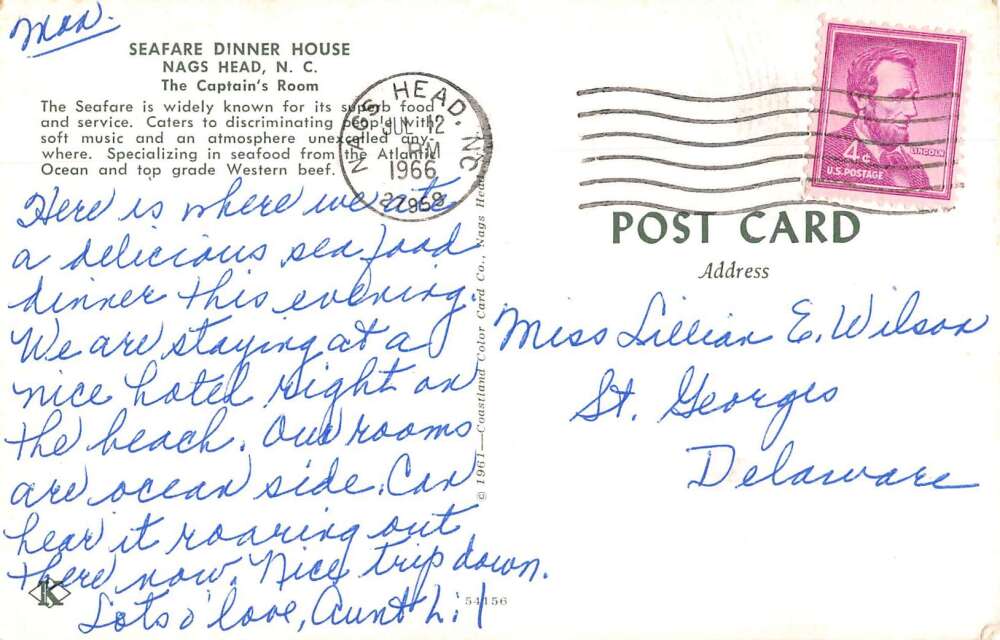 Mon.
SEAFARE DINNER HOUSE
NAGS HEAD, N. C.
The Captain's Room
The Seafare is widely known for its superb food
and service. Caters to discriminating people with
soft music and an atmosphere unexcelled any-
where. Specializing in seafood from the Atlantic
Ocean and top grade Western beef.
Here is where we ate
a delicious sea food
dinner this evening.
We are staying at a
nice hotel right on
the beach. Our rooms
are ocean side. Can
hear it roaring out
there now. Nice trip down.
Lots o' love, Aunt Lil
K
54156
© 1961—Coastland Color Card Co., Nags Head
NAGS HEAD, NC
12
PM
1966
27959
4¢
LINCOLN
U.S. POSTAGE
POST CARD
Address
Miss Lillian E. Wilson
St. Georges
Delaware